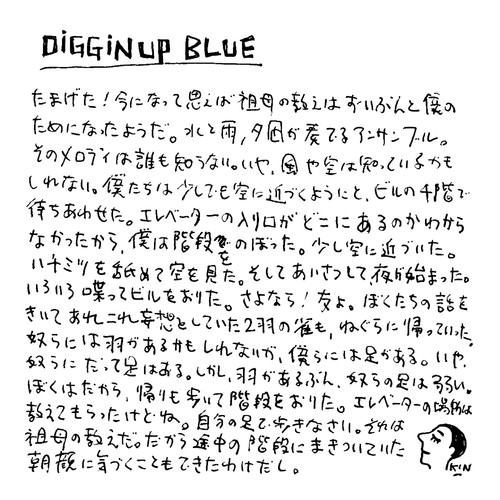 DiGGiNUP BLUE
たまげた！今になって思えば祖母の教えはずいぶんと僕の
ためになったようだ。水と雨，夕凪が奏でるアンサンブル。
そのメロディは誰も知らない。いや、風や空は知っているかも
しれない。僕たちは少しでも空に近づくようにと、ビルの4階で
待ちあわせた。エレベーターの入り口がどこにあるのかわから
なかったから、僕は階段をのぼった。少し空に近づいた。
ハチミツを舐めて空を見た。そしてあいさつして、夜が始まった。
いろいろ喋ってビルをおりた。さよなら！友よ。ぼくたちの話を
きいてあれこれ妄想としていた2羽の雀も、ねぐらに帰っていった。
奴らには羽があるかもしれないが、僕らには足がある。いや、
奴らにだって足はある。しかし、羽があるぶん、奴らの足は弱い。
ぼくはだから、帰りも歩いて階段をおりた。エレベーターの場所は
教えてもらったけどね。自分の足で歩きなさい。それは
祖母の教えだ。だから途中の階段にまきついていた
朝顔に気づくこともできたわけだし。
KIN